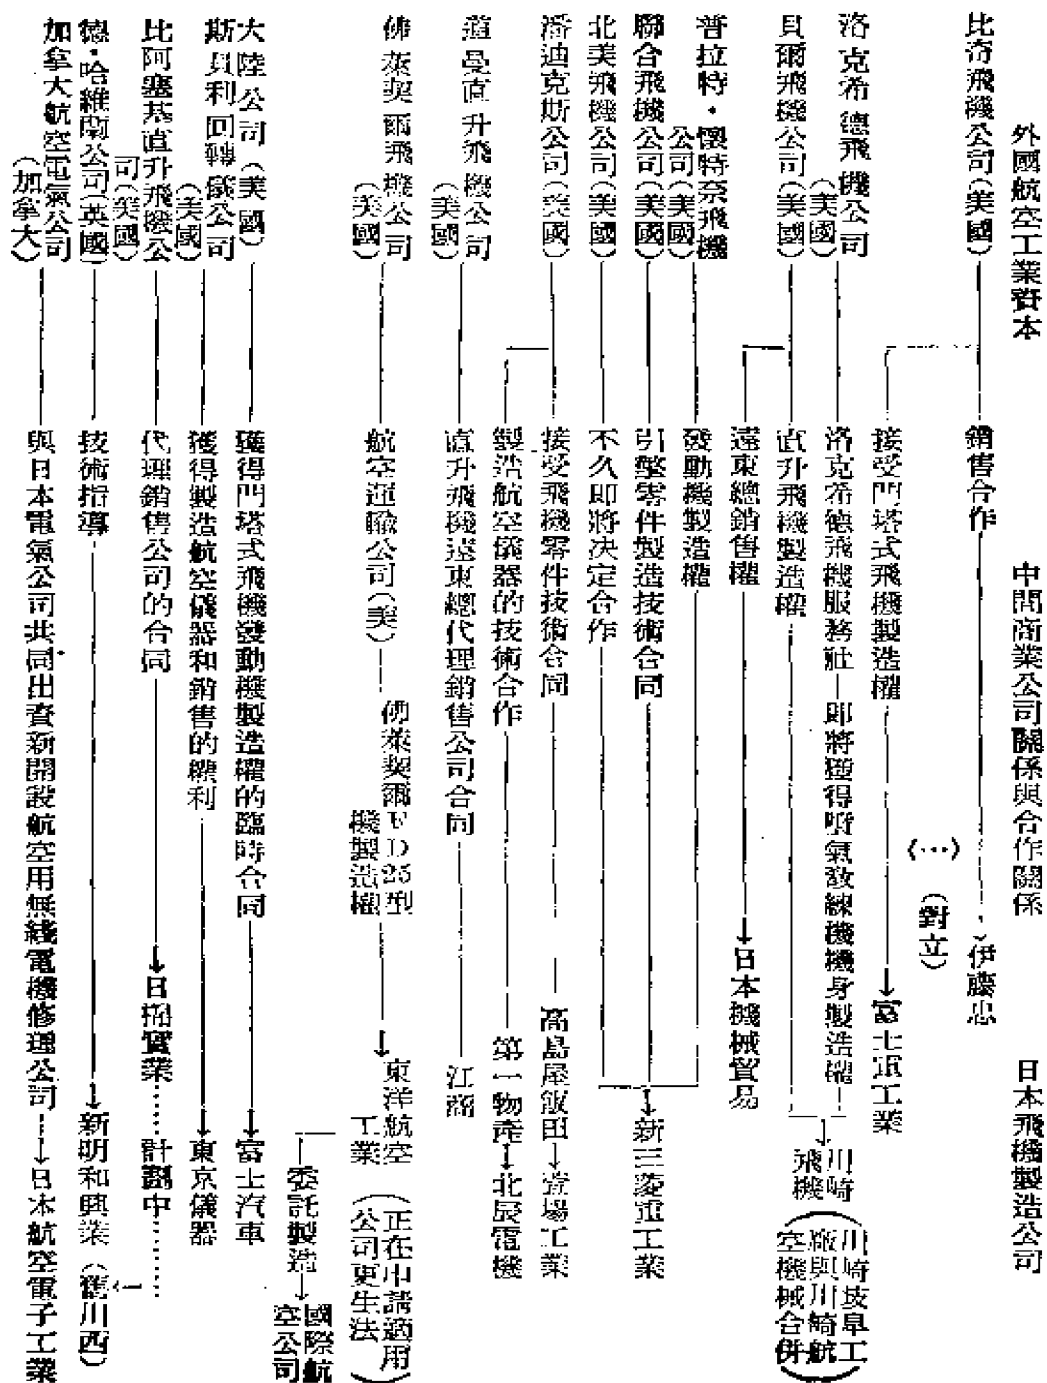 外國航空工業資本
中間商業公司關係與合作關係
日本飛機製造公司
比奇飛機公司(美國)
銷售合作
伊藤忠
接受門塔式飛機製造權
富士重工業
〈…〉(對立)
洛克希德飛機公司
(美國)
洛克希德飛機服務社
即將獲得噴氣敎練機機身製造權
貝爾飛機公司(美國)
直升飛機製造權
川崎
飛機
川崎岐阜工
廠與川崎航
空機械合併
遠東總銷售權
日本機械貿易
普拉特·懷特奈飛機
公司(美國)
發動機製造權
聯合飛機公司(美國)
引擎零件製造技術合同
新三菱重工業
北美飛機公司(美國)
不久即將决定合作
潘迪克斯公司(美國)
接受飛機零件技術合同
高島屋飯田
萱場工業
製造航空儀器的技術合作
第一物產
北辰電機
道曼直升飛機公司
(美國)
直升飛機遠東總代理銷售公司合同
江商
佛萊契爾飛機公司
(美國)
航空運輸公司(美)
佛萊契爾FD25型
機製造權
東洋航空
工業
(正在申請適用
公司更生法)
委託製造
國際航
空公司
大陸公司(美國)
獲得門塔式飛機發動機製造權的臨時合同
富士汽車
斯貝利回轉儀公司
(美國)
獲得製造航空儀器和銷售的權利
東京儀器
比阿塞基直升飛機公
司(美國)
代理銷售公司的合同
日綿實業
計劃中
德·哈維蘭公司(英國)
技術指導
新明和興業(舊川西)
加拿大航空電氣公司
(加拿大)
與日本電氣公司共同出資新開設航空用無綫電機修理公司
日本航空電子工業